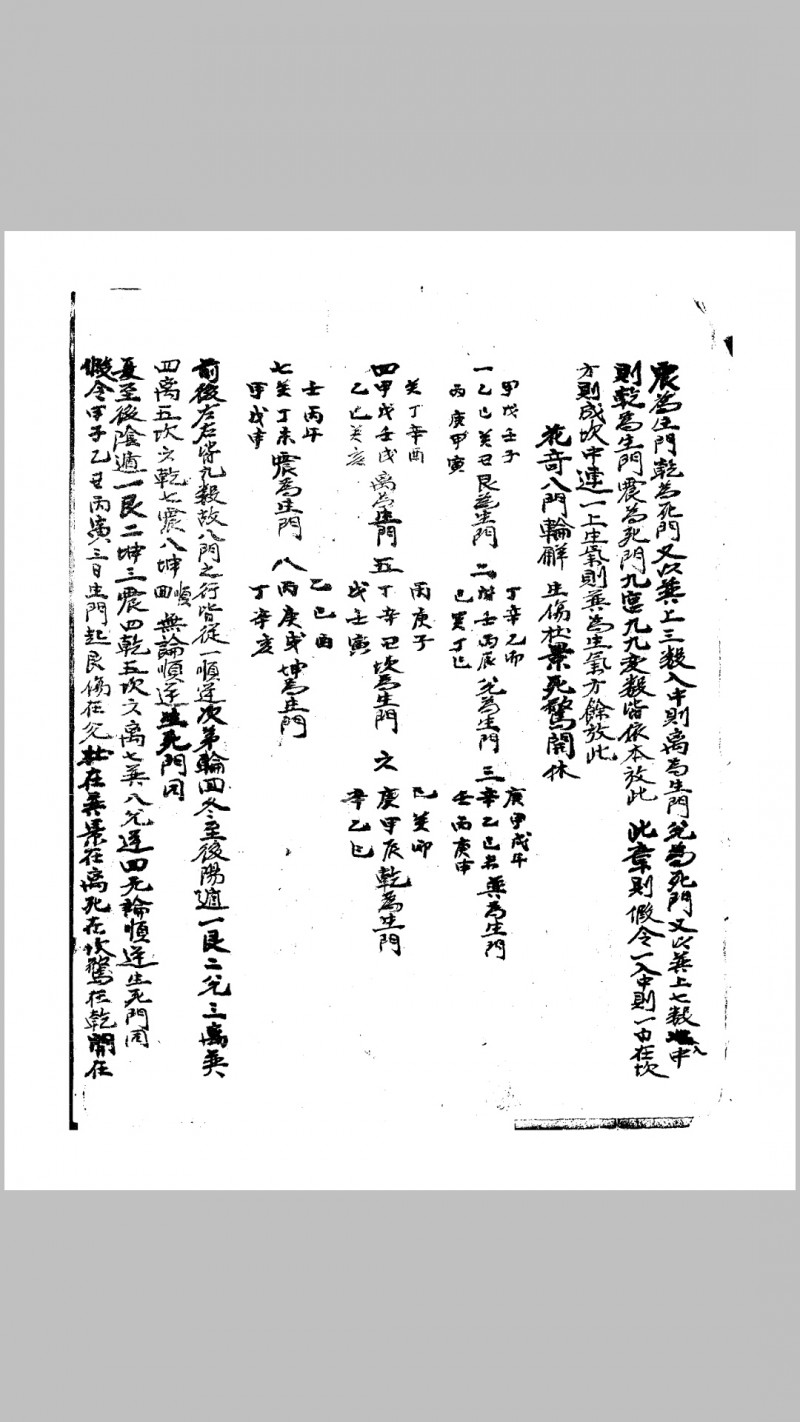 震為生門乾為死門又以巽上三数入中則离為生門兌為死門又以巽上七数入中
則乾為生門震為死門九宮九九变数皆依本放此 此章則假令一入中則一白在坎
方則成坎中連一上生氣則巽為生氣方餘放此
花奇八門輪解 生傷杜景死驚開休
甲戊壬子 丁辛乙卯 庚甲戊午
一乙己癸丑艮為生門 二戊壬丙辰兌為生門 三辛乙己未巽為生門
丙庚甲寅 己癸丁巳 壬丙庚申
癸丁辛酉 丙庚子 己癸卯
四甲戊壬戌离為生門 五丁辛丑坎為生門 六庚甲辰乾為生門
乙己癸亥 戊壬寅 辛乙巳
壬丙午 乙己酉
七癸丁未震為生門 八丙庚戌坤為生門
甲戊申 丁辛亥
前後左右皆九数故八門之行皆從一順逆次第輪回冬至後陽遁一艮二兌三离巽
四离五坎六乾七震八坤順回無論順逆生死門同
夏至後陰遁一艮二坤三震四乾五坎六离七巽八兌逆回无論順逆生死門同
假令甲子乙丑丙寅三日生門起艮傷在兌杜在巽景在离死在坎驚在乾開在